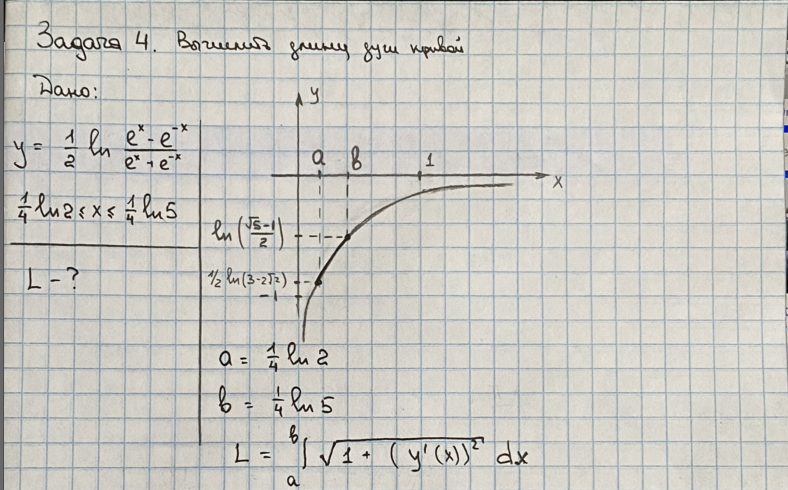 Задача 4. Вычислить длину дуги кривой
Дано:
y = 1/2 ln (eˣ - e⁻ˣ)/(eˣ + e⁻ˣ)
1/4 ln 2 ≤ x ≤ 1/4 ln 5
L - ?
y
a b 1
x
ln((√5-1)/2)
1/2 ln(3-2√2)
-1
a = 1/4 ln 2
b = 1/4 ln 5
L = ∫ₐᵇ √(1 + (y'(x))²) dx